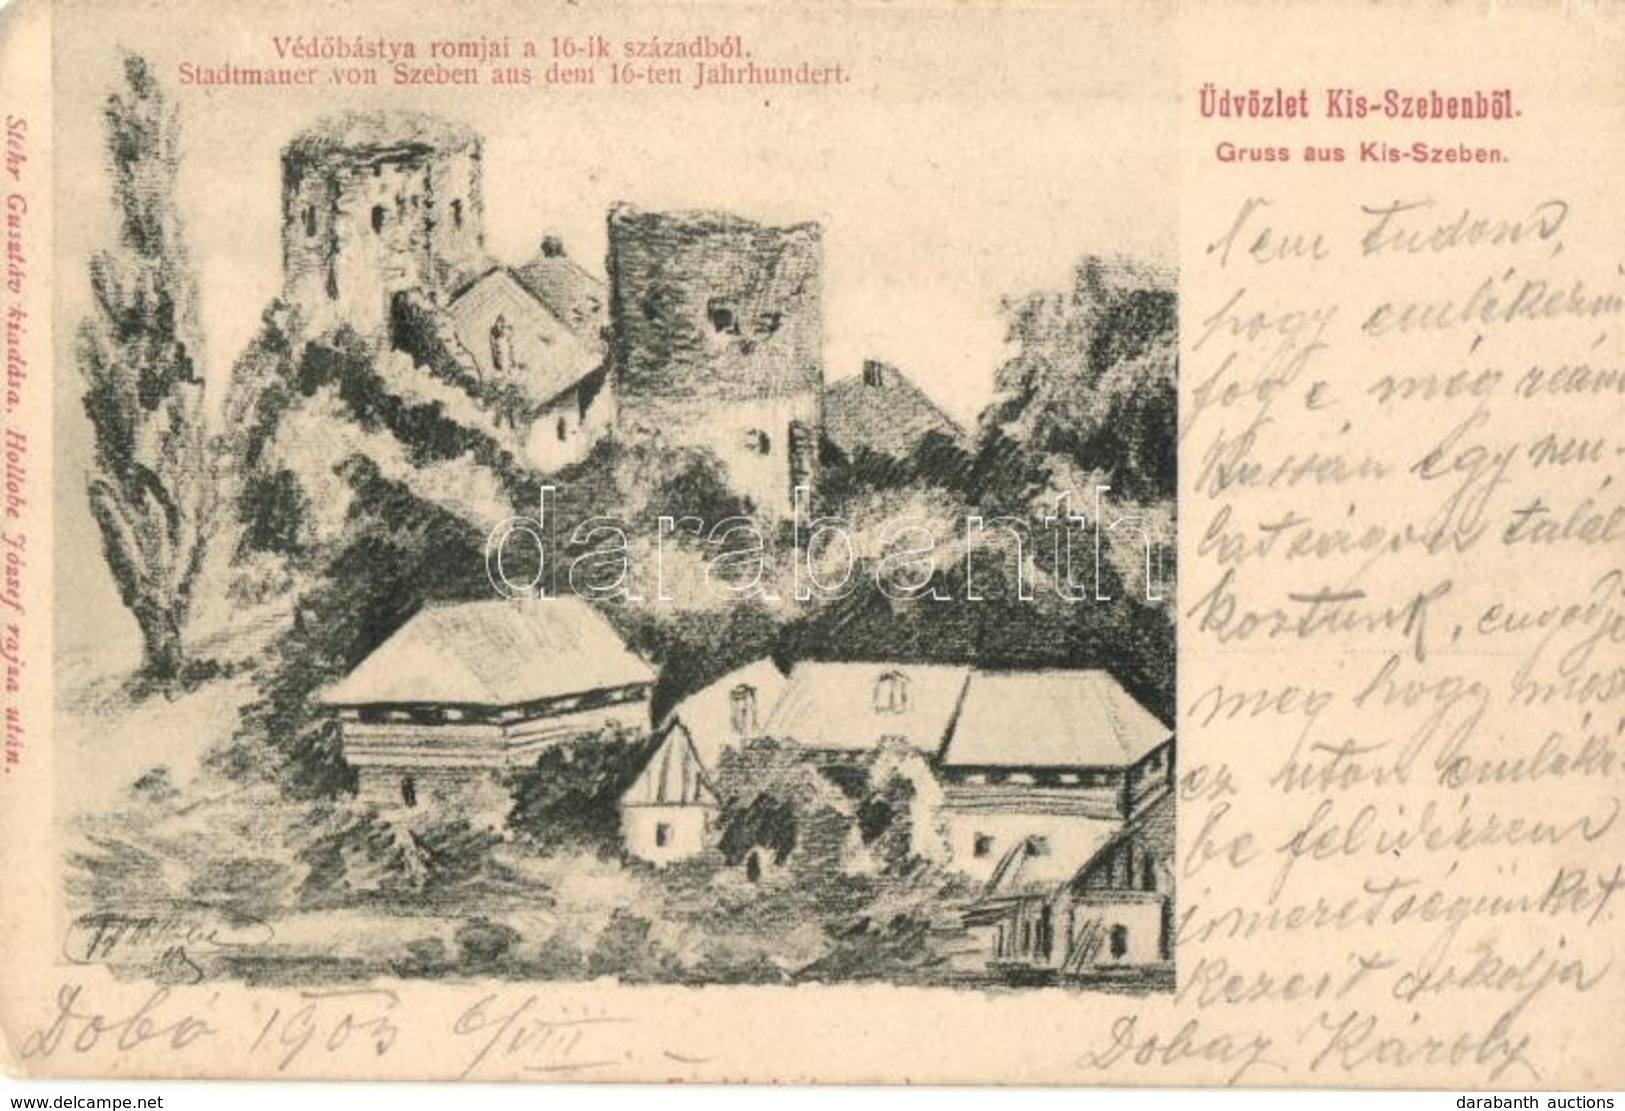 Védőbástya romjai a 16-ik századból.
Stadtmauer von Szeben aus dem 16-ten Jahrhundert.
Üdvözlet Kis-Szebenből.
Gruss aus Kis-Szeben.
Stehr Gusztáv kiadása. Hollobe József rajza után.
Nem tudom,
hogy emlékezni
fog e még reám
Kassán egy mu-
latságon talál
koztunk, engedje
meg hogy most
ez uton emléké-
be felidézzem
ismeretségünket
Kezeit csókolja
Dobay Károly
Dobó 1903 6/VIII.
darabanth
www.delcampe.net
darabanth auctions